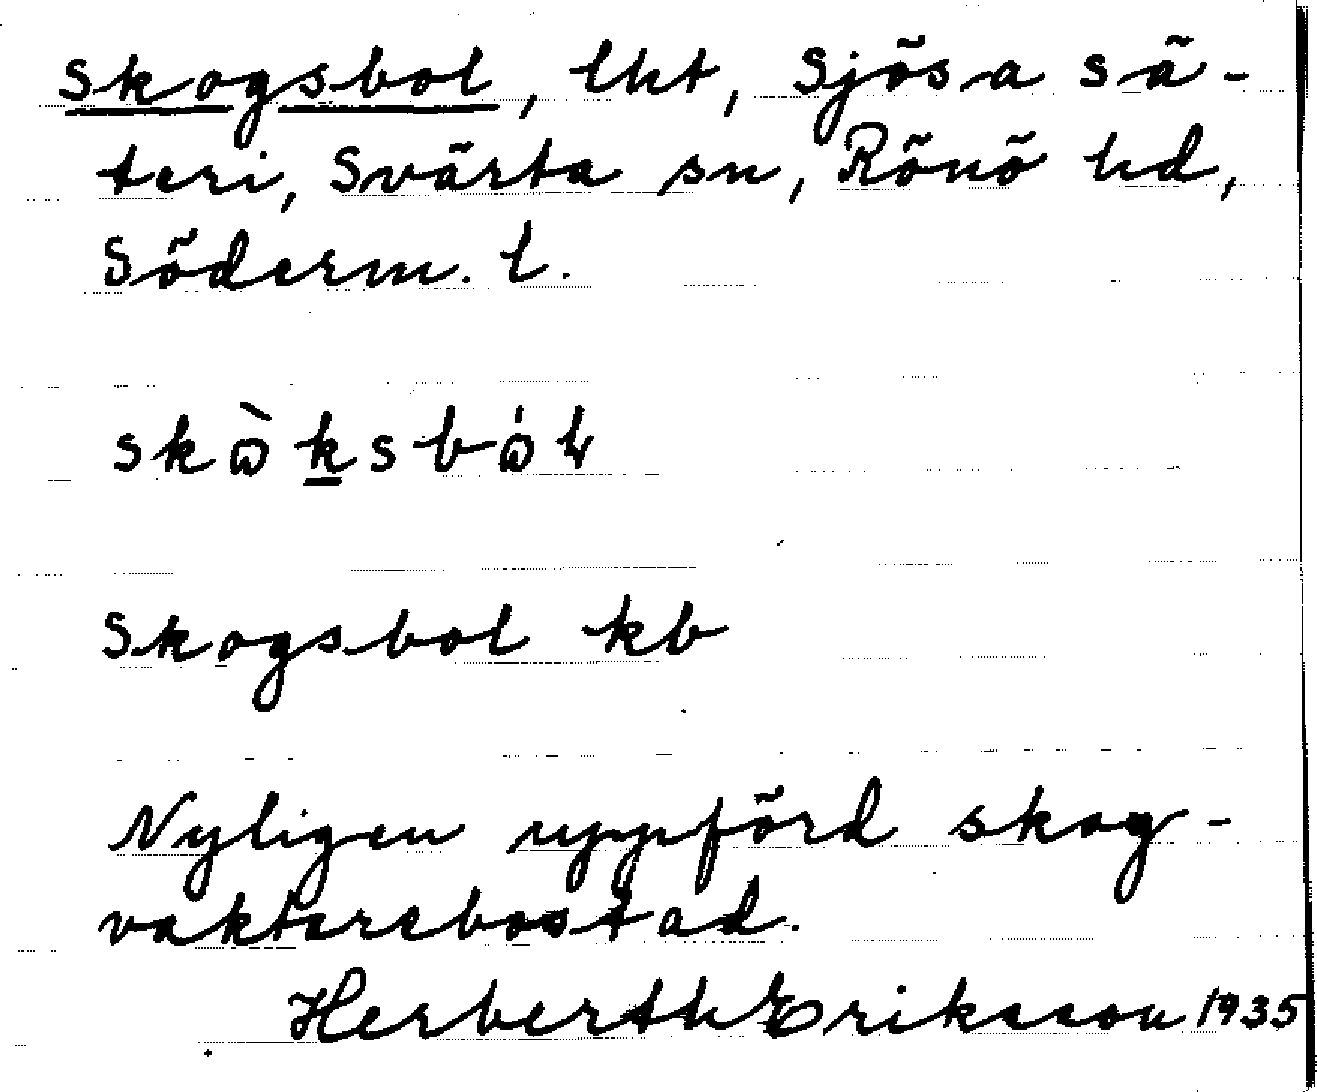 Skogsbol, lht, Sjösa sä-
teri, Svärta sn, Rönö hd,
Söderm. l.
Skogsbol kb
Nyligen uppförd skog-
vaktarebostad.
Herberth Eriksson 1935